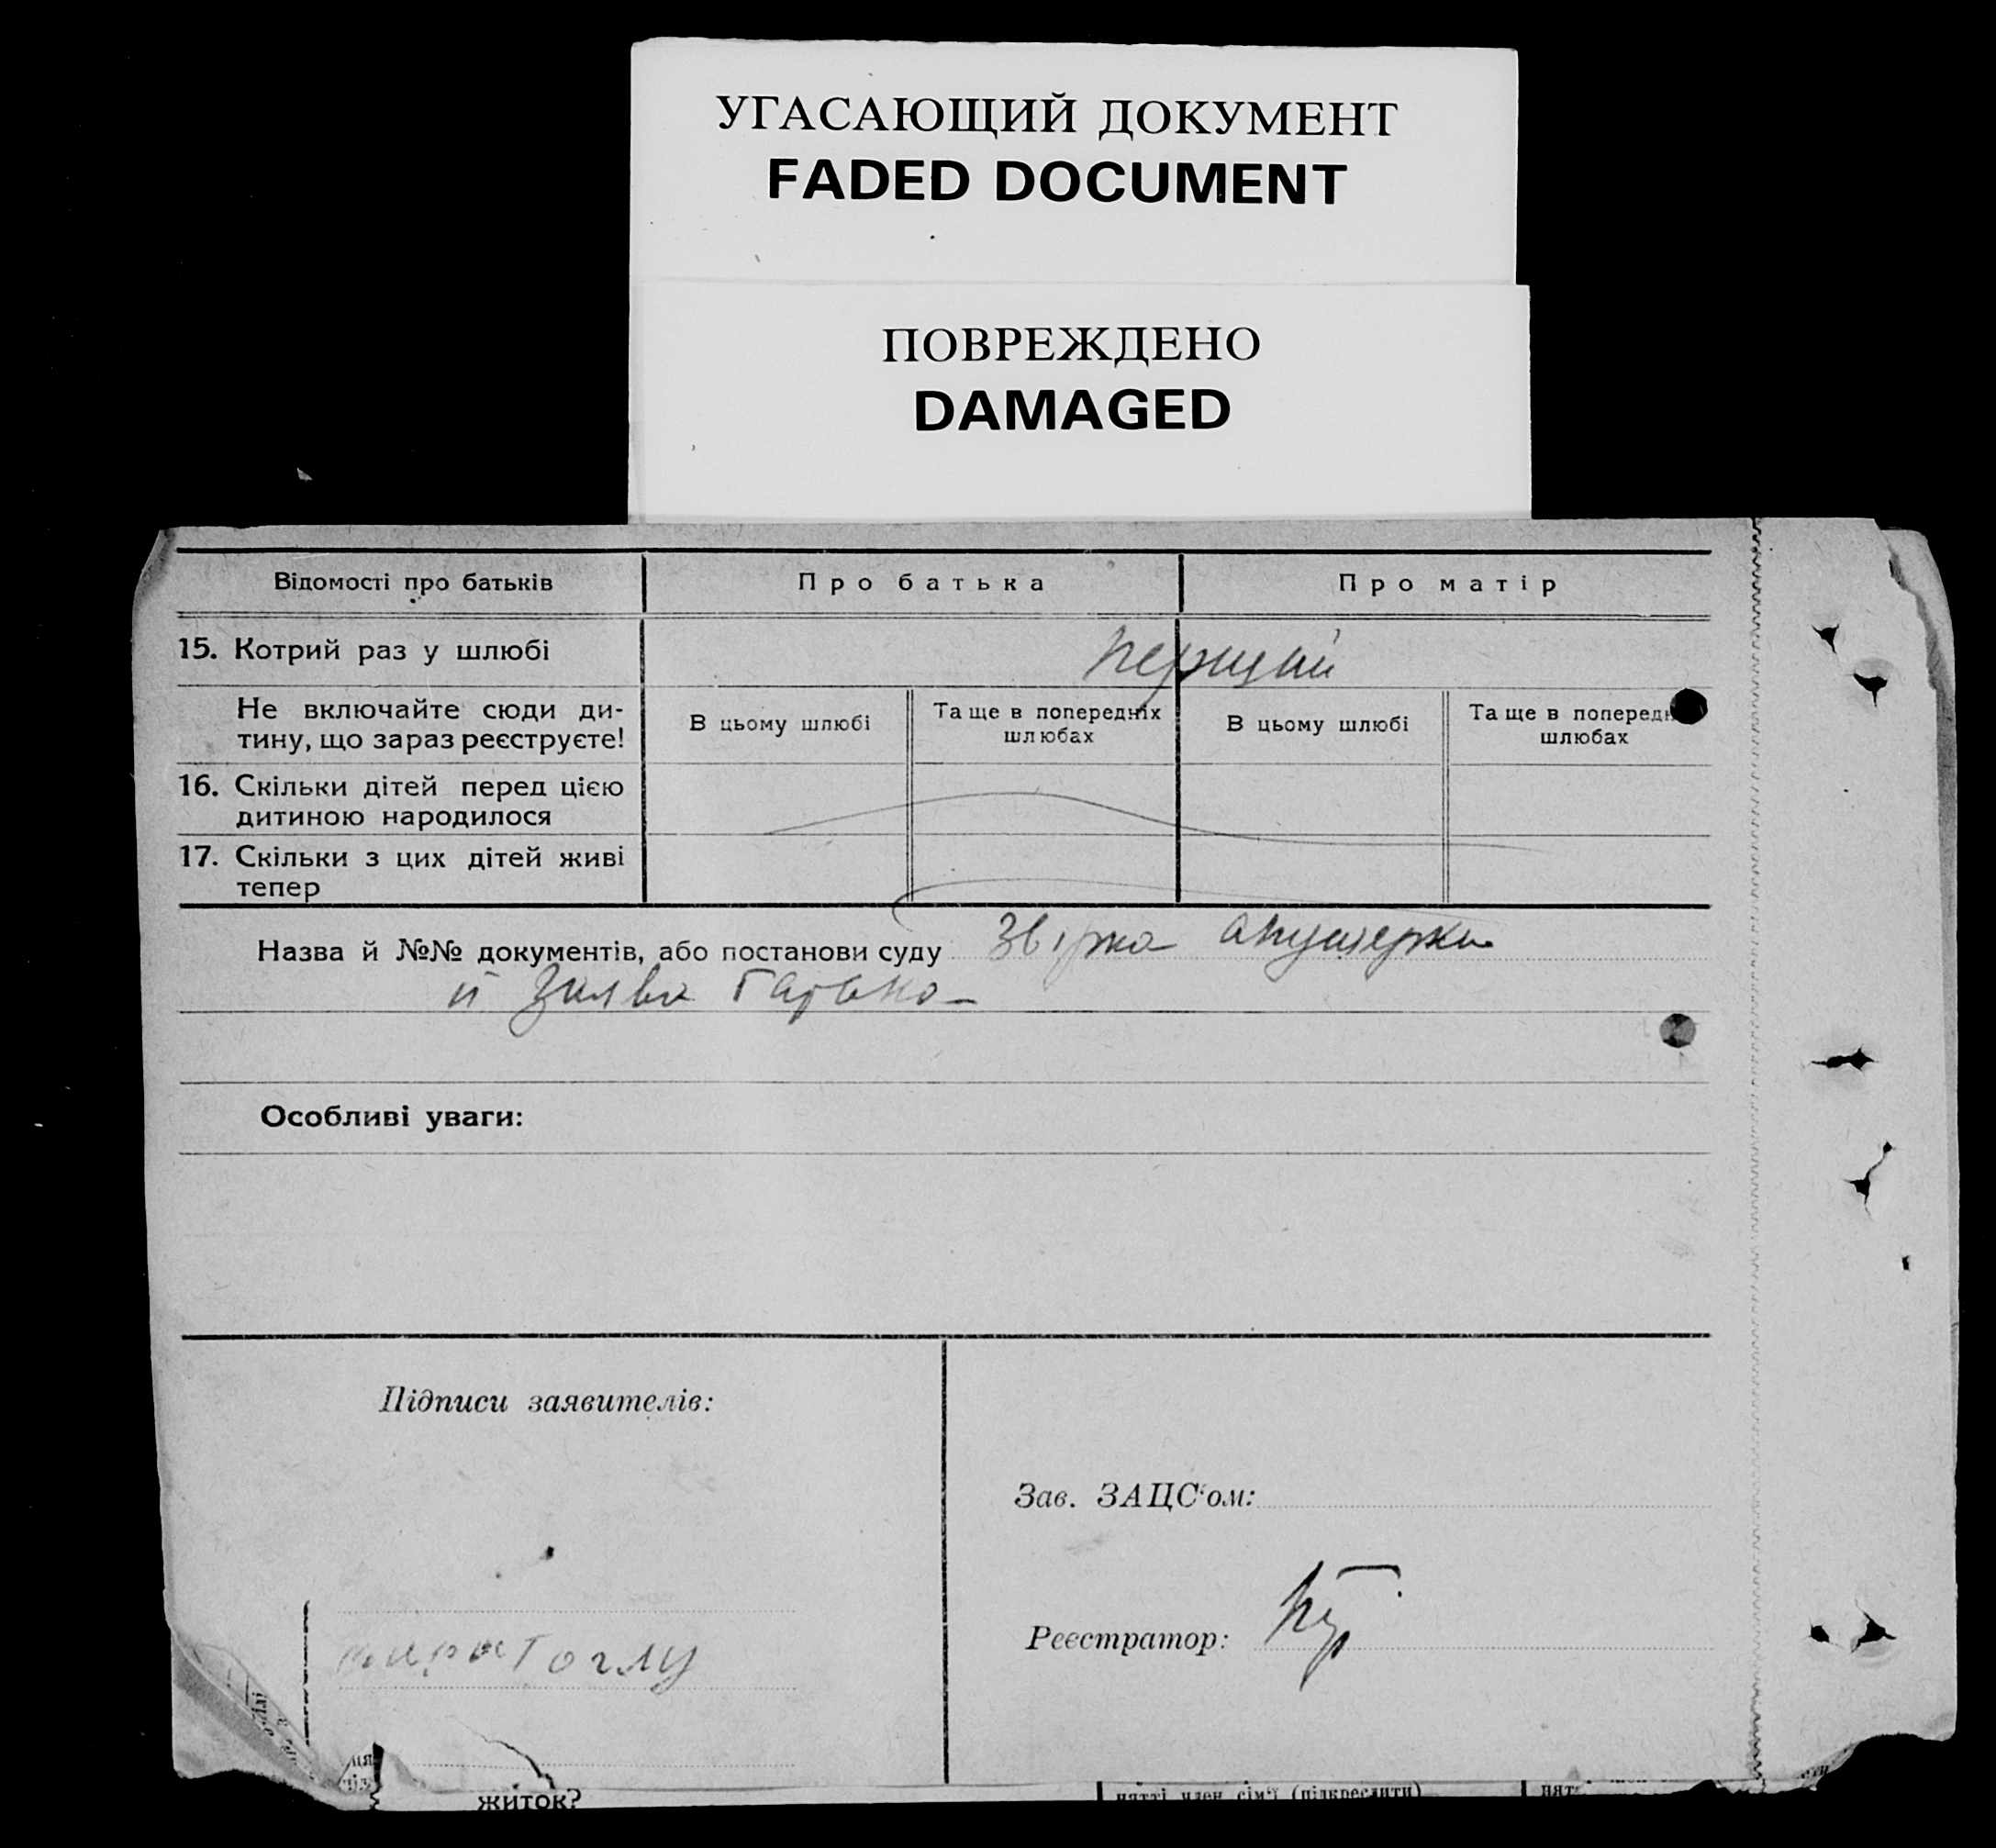 УГАСАЮЩИЙ ДОКУМЕНТ
FADED DOCUMENT
ПОВРЕЖДЕНО
DAMAGED
Відомості про батьків Про батька Про матір
15. Котрий раз у шлюбі перший
Не включайте сюди ди-
тину, що зараз реєструєте!
В цьому шлюбі
Та ще в попередніх
шлюбах
В цьому шлюбі
Та ще в поперед
шлюбах
16. Скільки дітей перед цією
дитиною народилося
17. Скільки з цих дітей живі
тепер
Назва й №№ документів, або постанови суду акушерки
й заява батька
Особливі уваги:
Підписи заявителів:
Зав. ЗАЦС'ом:
Реєстратор:
житок?
нятті член сім'ї (підкреслити)